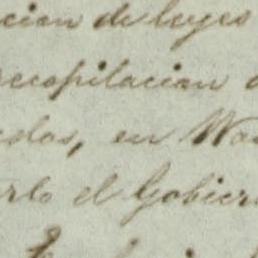 cion de leyes
recopilacion
dos, en Wa
rlo el Gobier